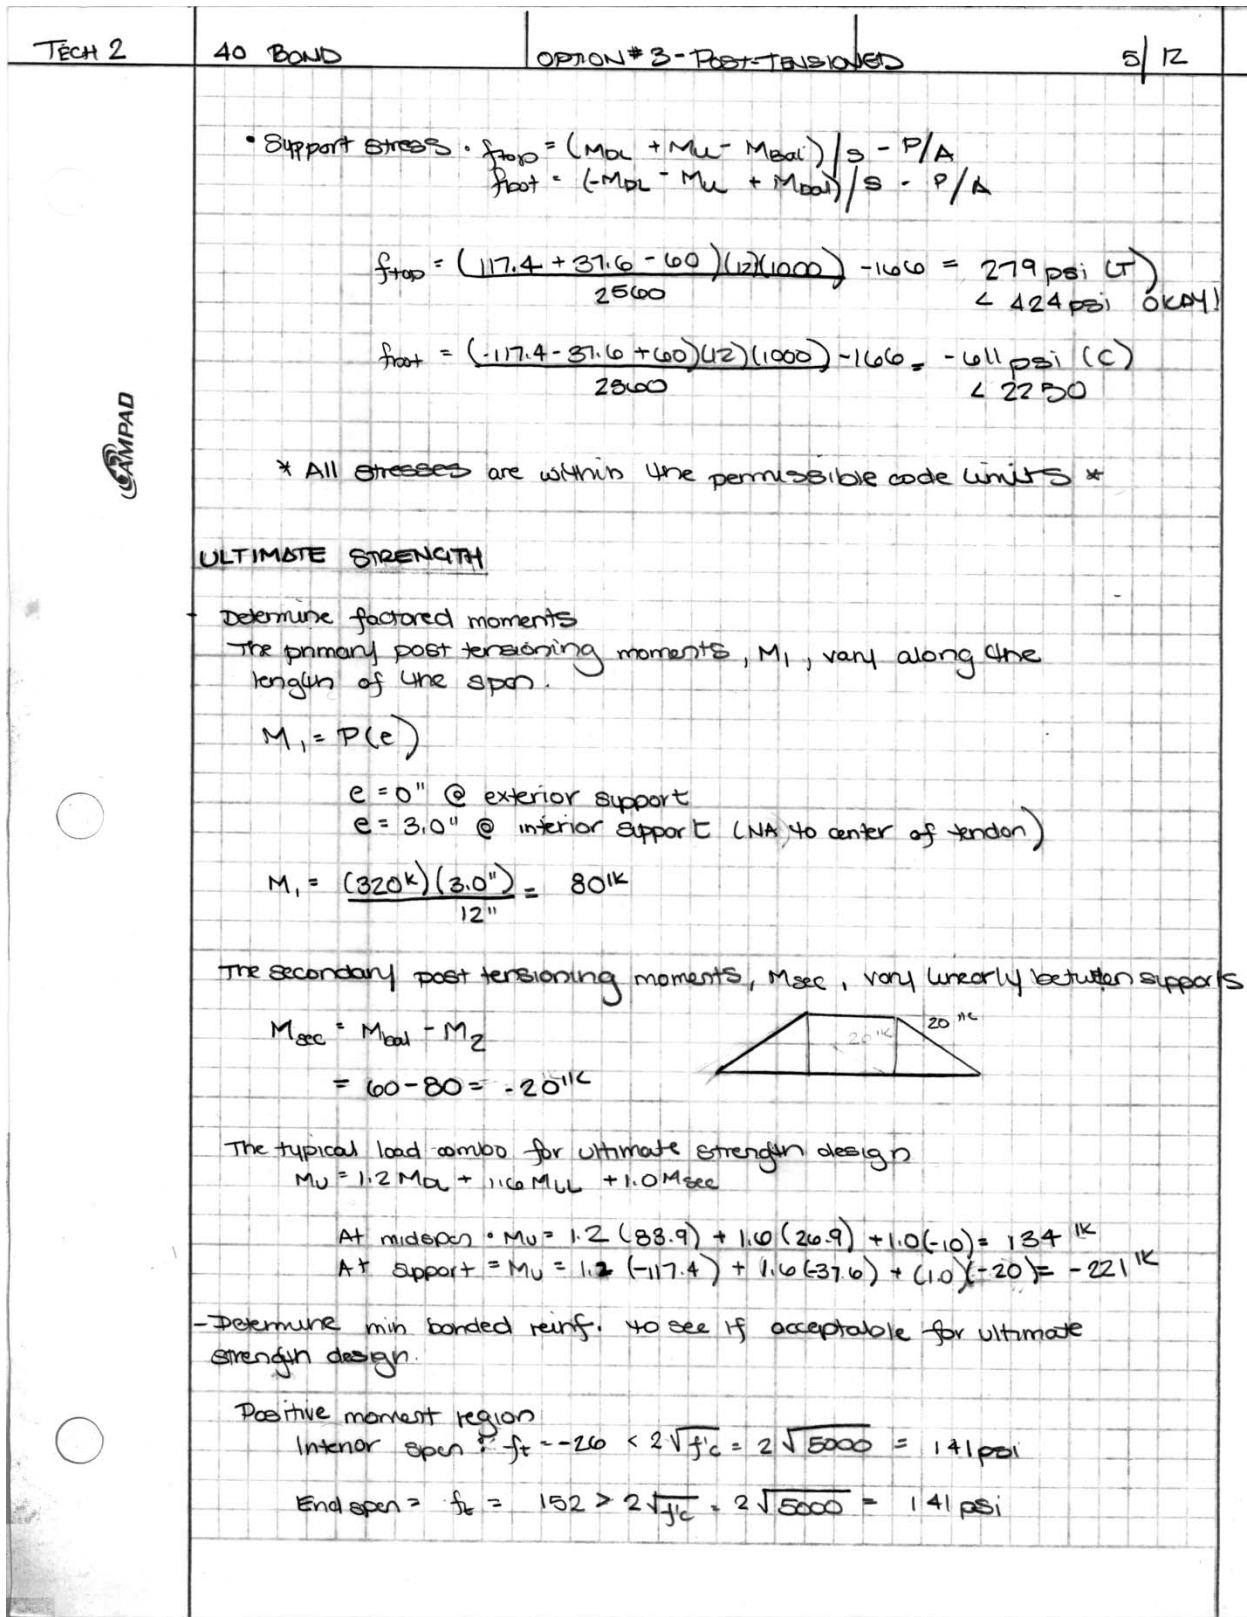 TECH 2 40 BOND OPTION #3 - POST-TENSIONED 5/12
• Support stress • ftop = (MDL + MLL - MBal)/S - P/A
fbot = (-MDL - MLL + Mbal)/S - P/A
ftop = (117.4 + 37.6 - 60)(12)(1000) - 166 = 279 psi (T)
2560 < 424 psi OKAY!
fbot = (-117.4 - 37.6 + 60)(12)(1000) - 166 = -611 psi (C)
2560 < 2250
AMPAD
* All stresses are within the permissible code limits *
ULTIMATE STRENGTH
- Determine factored moments
The primary post tensioning moments, M1, vary along the
length of the span.
M1 = P(e)
e = 0" @ exterior support
e = 3.0" @ interior support (NA to center of tendon)
M1 = (320K)(3.0") = 80'K
12"
The secondary post tensioning moments, Msec, vary linearly between supports
Msec = Mbal - M2
20'K
20'K
= 60 - 80 = -20'K
The typical load combo for ultimate strength design
MU = 1.2 MDL + 1.6 MLL + 1.0 Msec
At midspan • MU = 1.2 (88.9) + 1.6 (26.9) + 1.0(-10) = 134 'K
At support = MU = 1.2 (-117.4) + 1.6 (-37.6) + (1.0)(-20) = -221'K
- Determine min bonded reinf. to see if acceptable for ultimate
strength design.
Positive moment region
Interior span : ft = -26 < 2√f'c = 2√5000 = 141psi
End span = ft = 152 > 2√f'c = 2√5000 = 141 psi